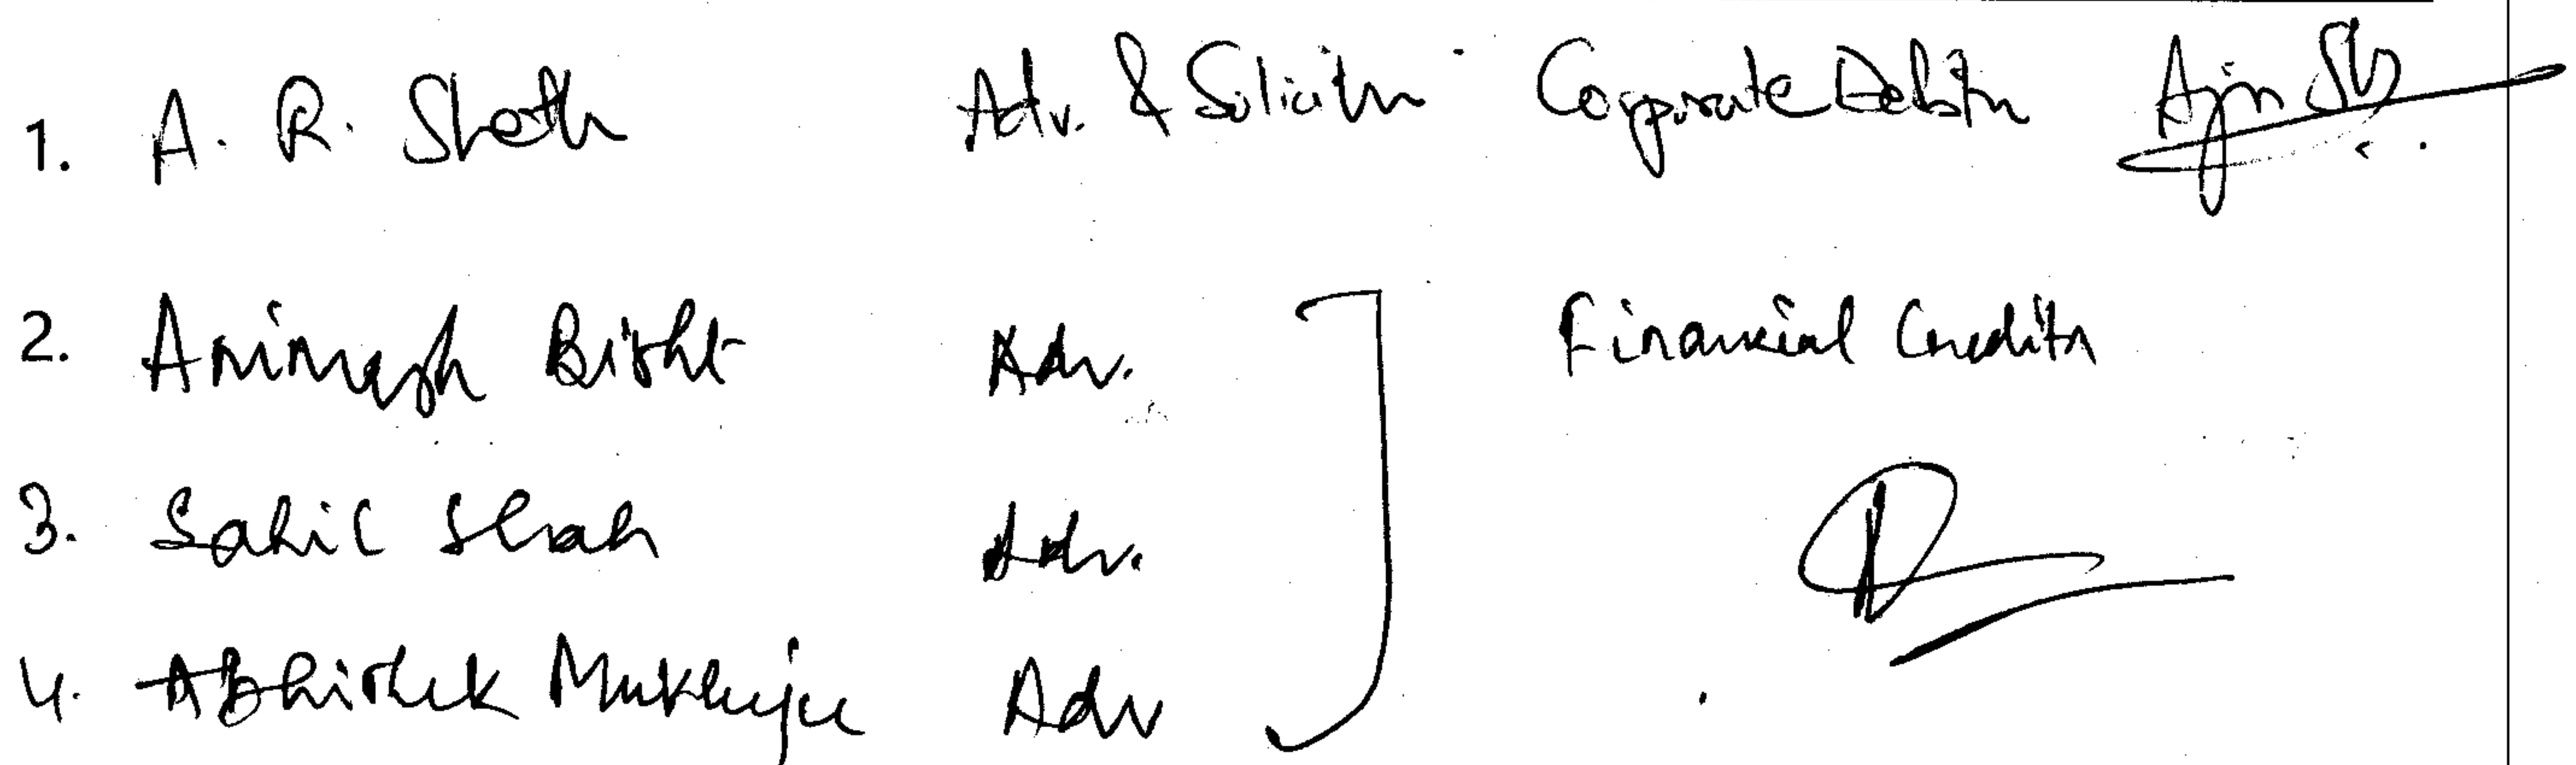 1. A. R. Sheth Adv. & Solicitor Corporate Debtor
2. Animesh Bisht Adv. Financial Creditor
3. Sahil Shah Adv.
4. Abhishek Mukherjee Adv